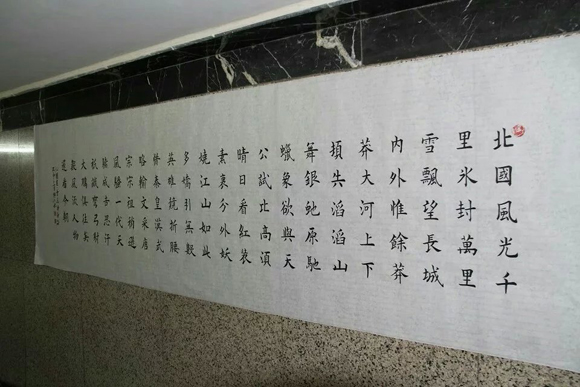 北國風光千
里氷封萬里
雪飄望長城
內外惟餘莽
莽大河上下
頓失滔滔山
舞銀蛇原馳
蠟象欲與天
公試比高湏
晴日看紅装
素裹分外妖
嬈江山如此
多嬌引無數
英雄競折腰
惜秦皇漢武
略輸文采唐
宗宋祖稍遜
風騷一代天
驕成吉思汗
祇識彎弓射
大鵰俱往矣
數風流人物
還看今朝